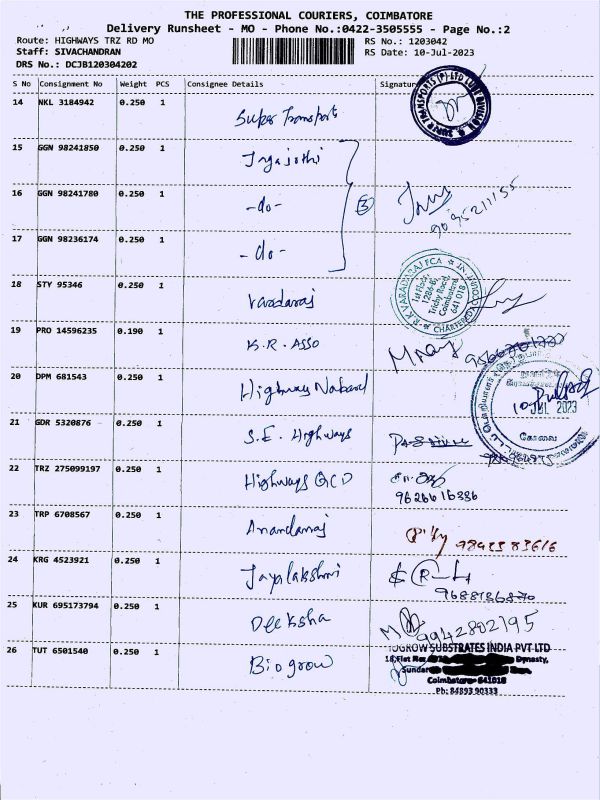 THE PROFESSIONAL COURIERS, COIMBATORE
Delivery Runsheet - MO - Phone No.:0422-3505555 - Page No.:2
Route: HIGHWAYS TRZ RD MO
RS No.: 1203042
Staff: SIVACHANDRAN
RS Date: 10-Jul-2023
DRS No.: DCJB120304202
S No Consignment No Weight PCS Consignee Details Signature
14 NKL 3184942 0.250 1 Super Transports
15 GGN 98241850 0.250 1 Jegajothi
16 GGN 98241780 0.250 1 -do- 3 9095211155
17 GGN 98236174 0.250 1 -do-
18 STY 95346 0.250 1 Varadaraj
R.K. VARADARAJ FCA
1st Floor,
1286-B,
Trichy Road,
Coimbatore
641 018
CHARTERED ACCOUNTANT
19 PRO 14596235 0.190 1 K.R. ASSO
20 DPM 681543 0.250 1 Highway Nabard
10 JUL 2023
கோவை
21 GDR 5320876 0.250 1 S.E. Highways
22 TRZ 275099197 0.250 1 Highways QCD
9626616386
23 TRP 6708567 0.250 1 Anandaraj 9843583616
24 KRG 4523921 0.250 1 Jayalakshmi
25 KUR 695173794 0.250 1 Deeksha 9942802195
26 TUT 6501540 0.250 1 Biogrow
IOGROW SUBSTRATES INDIA PVT LTD
Dynasty,
Coimbatore- 641018
Ph: 84893 90333